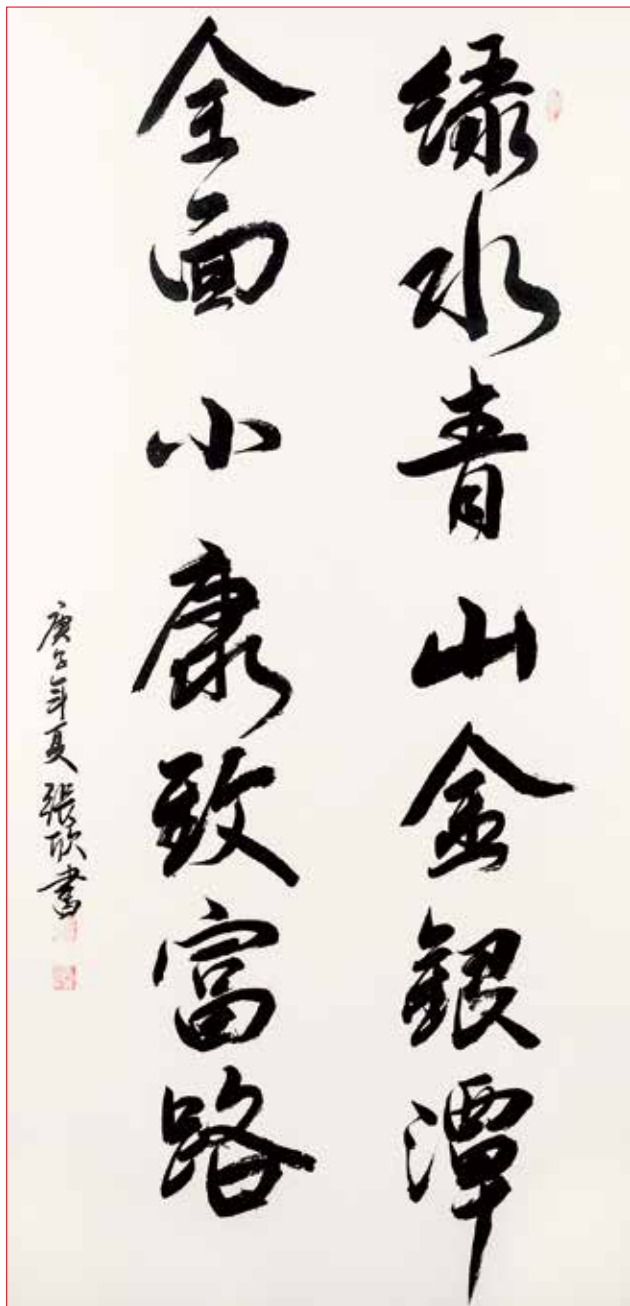 绿水青山金银潭
全面小康致富路
庚子年夏 張欣書